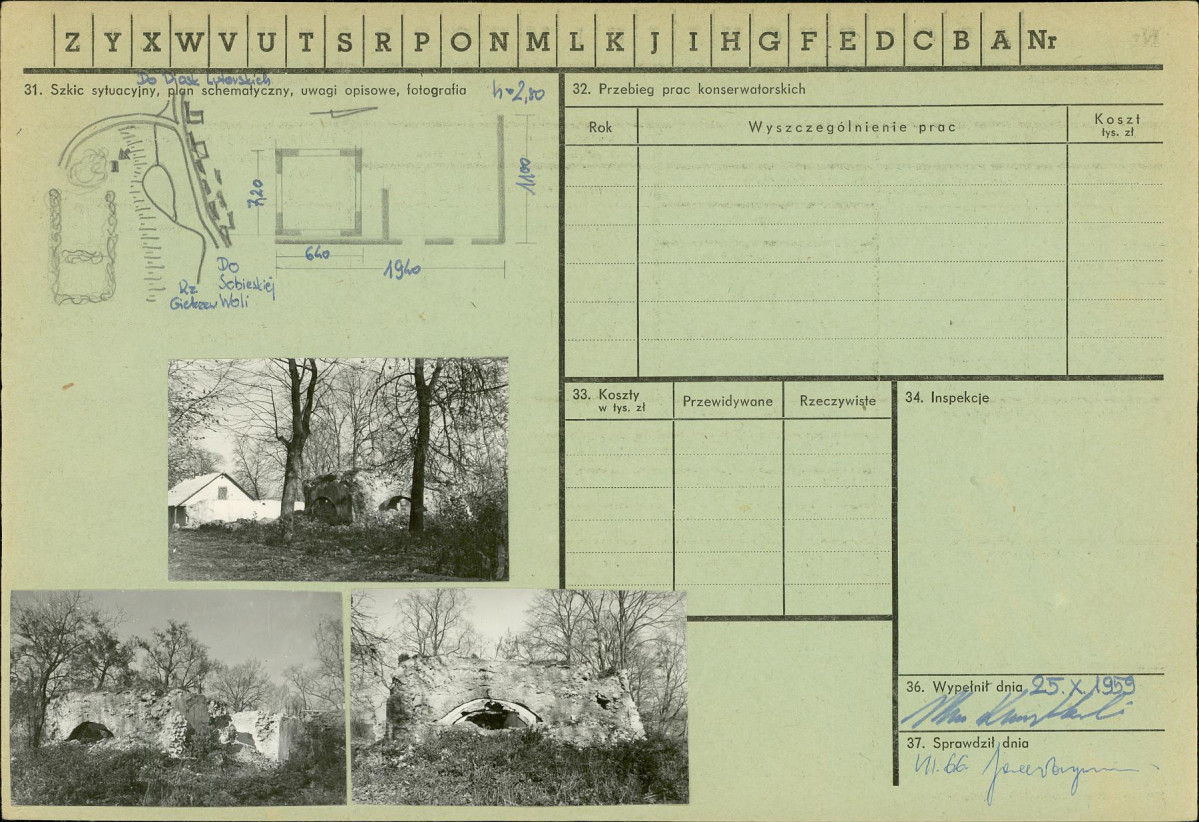 Z Y X W V U T S R P O N M L K J I H G F E D C B A Nr
31. Szkic sytuacyjny, plan schematyczny, uwagi opisowe, fotografia
Do Piask Luterskich
h=2,80
7,20
1100
640
1940
Rz
Giełczew
Do
Sobieskiej
Woli
32. Przebieg prac konserwatorskich
Rok
Wyszczególnienie prac
Koszt
tys. zł
33. Koszty
w tys. zł
Przewidywane
Rzeczywiste
34. Inspekcje
36. Wypełnił dnia 25.X.1959
37. Sprawdził dnia
VII.66